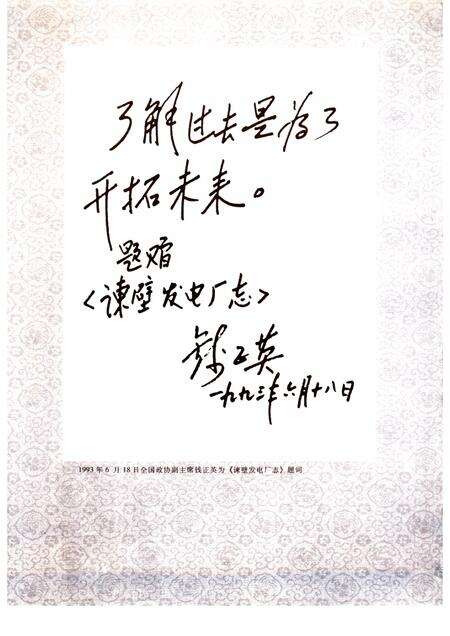 了解过去是为了
开拓未来。
题赠
〈谏壁发电厂志〉
钱正英
一九九三年六月十八日
1993年6月18日全国政协副主席钱正英为《谏壁发电厂志》题词